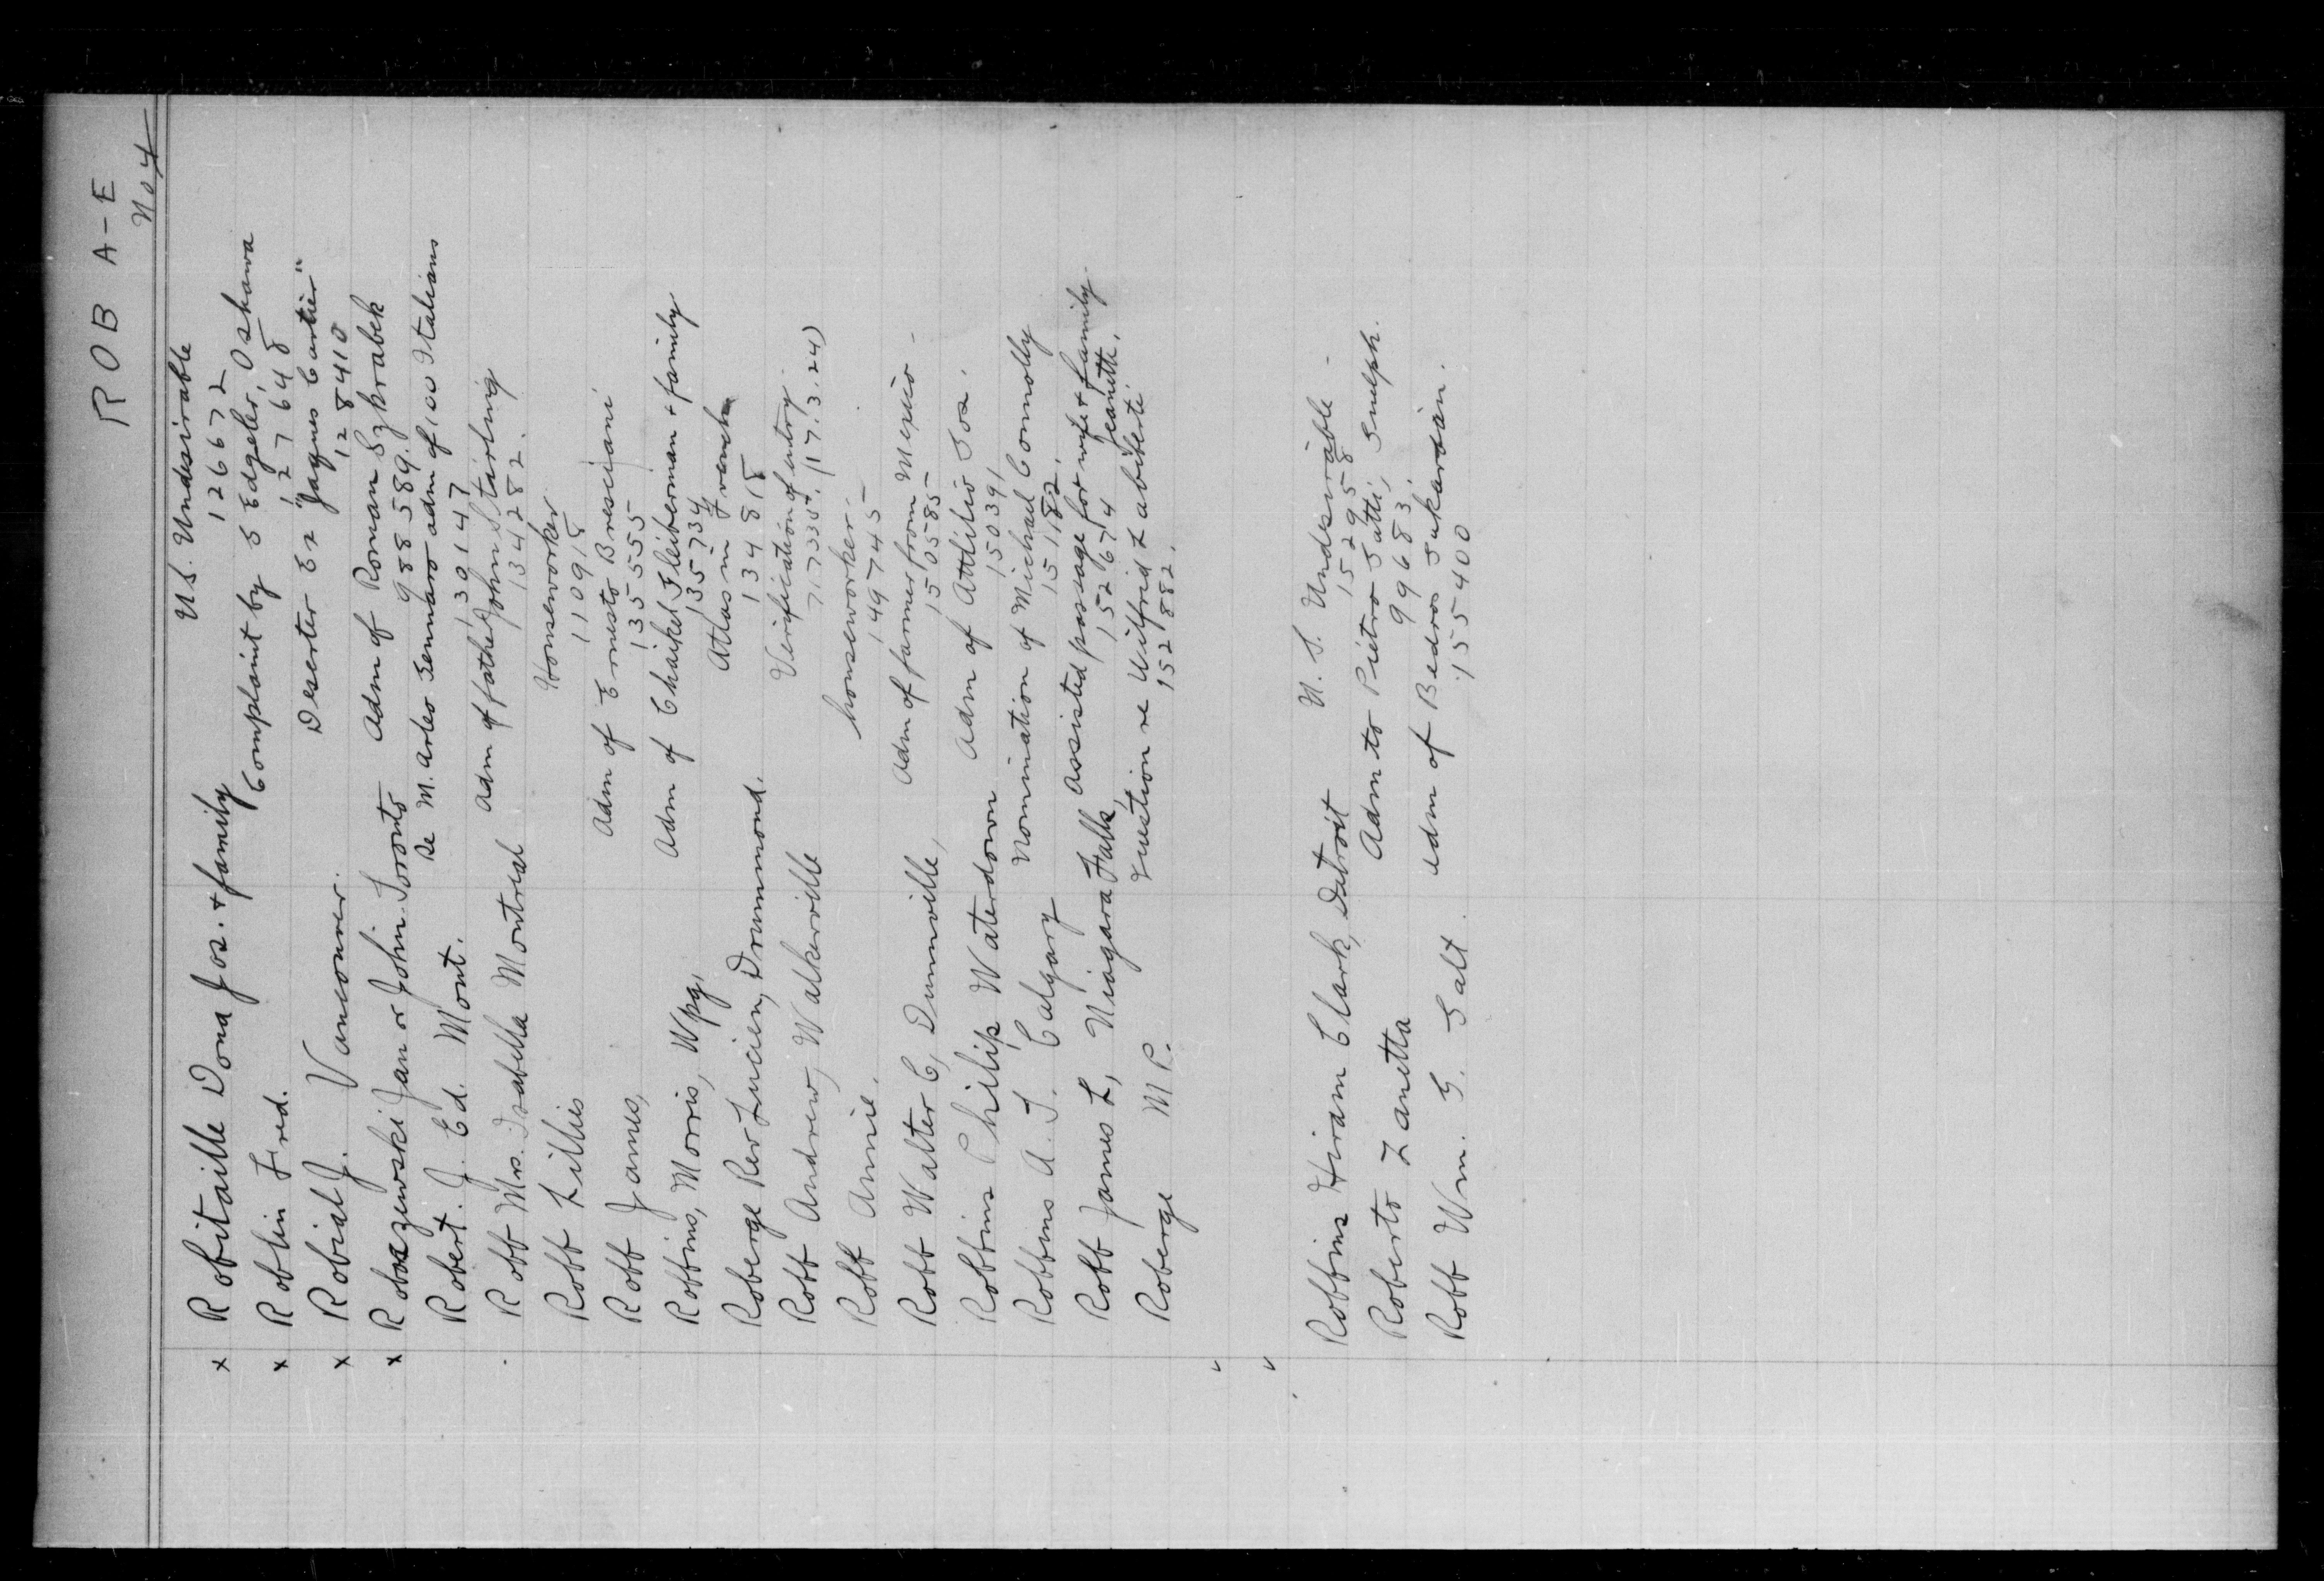 ROB A-E
No 4
x Robitaille Dona Jos. + family U.S. Undesirable
126672
x Roblin Fred. Complaint by S Edgeler, Oshawa
127648
x Robial J. Vancouver. Deserter Ex "Jaques Cartier"
128410
x Robaszewski Jan or John Toronto Adm of Roman Szkrabek
988589.
Robert. J. Ed. Mont. Re M. Arleo Gennaro adm of 100 Italians
130147
Robb Mrs. Isabella Montreal Adm of father John Starling
134282.
Robb Lillies Houseworker
110918
Robb James, Adm of Ernesto Bresciani
135555
Robbins, Morris, Wpg. Adm of Chaikel Gleiberman + family
135734
Roberge Rev Lucien, Drummond. Atlas in French
134818
Robb Andrew, Walkerville Verification of entry.
71733. (17.3.24)
Robb Annie. houseworker.
149745
Robb Walter C, Dunnville, Adm of farmer from Mexico -
150585
Robbins Philip Waterdown Adm of Attilio Tos.
150391
Robbins A. T. Calgary Nomination of Michael Connolly
151182.
Robb James L, Niagara Falls, Assisted passage for wife + family
152674 Jeanette,
Roberge M P. Question re Wilfrid Labiberté
152882.
Robbins Hiram Clark, Detroit U. S. Undesirable -
152958
Roberto Zanetta Adm to Pietro Gatti, Guelph.
99683.
Robb Wm. G. Galt Adm of Bedros Sukarsian.
155400